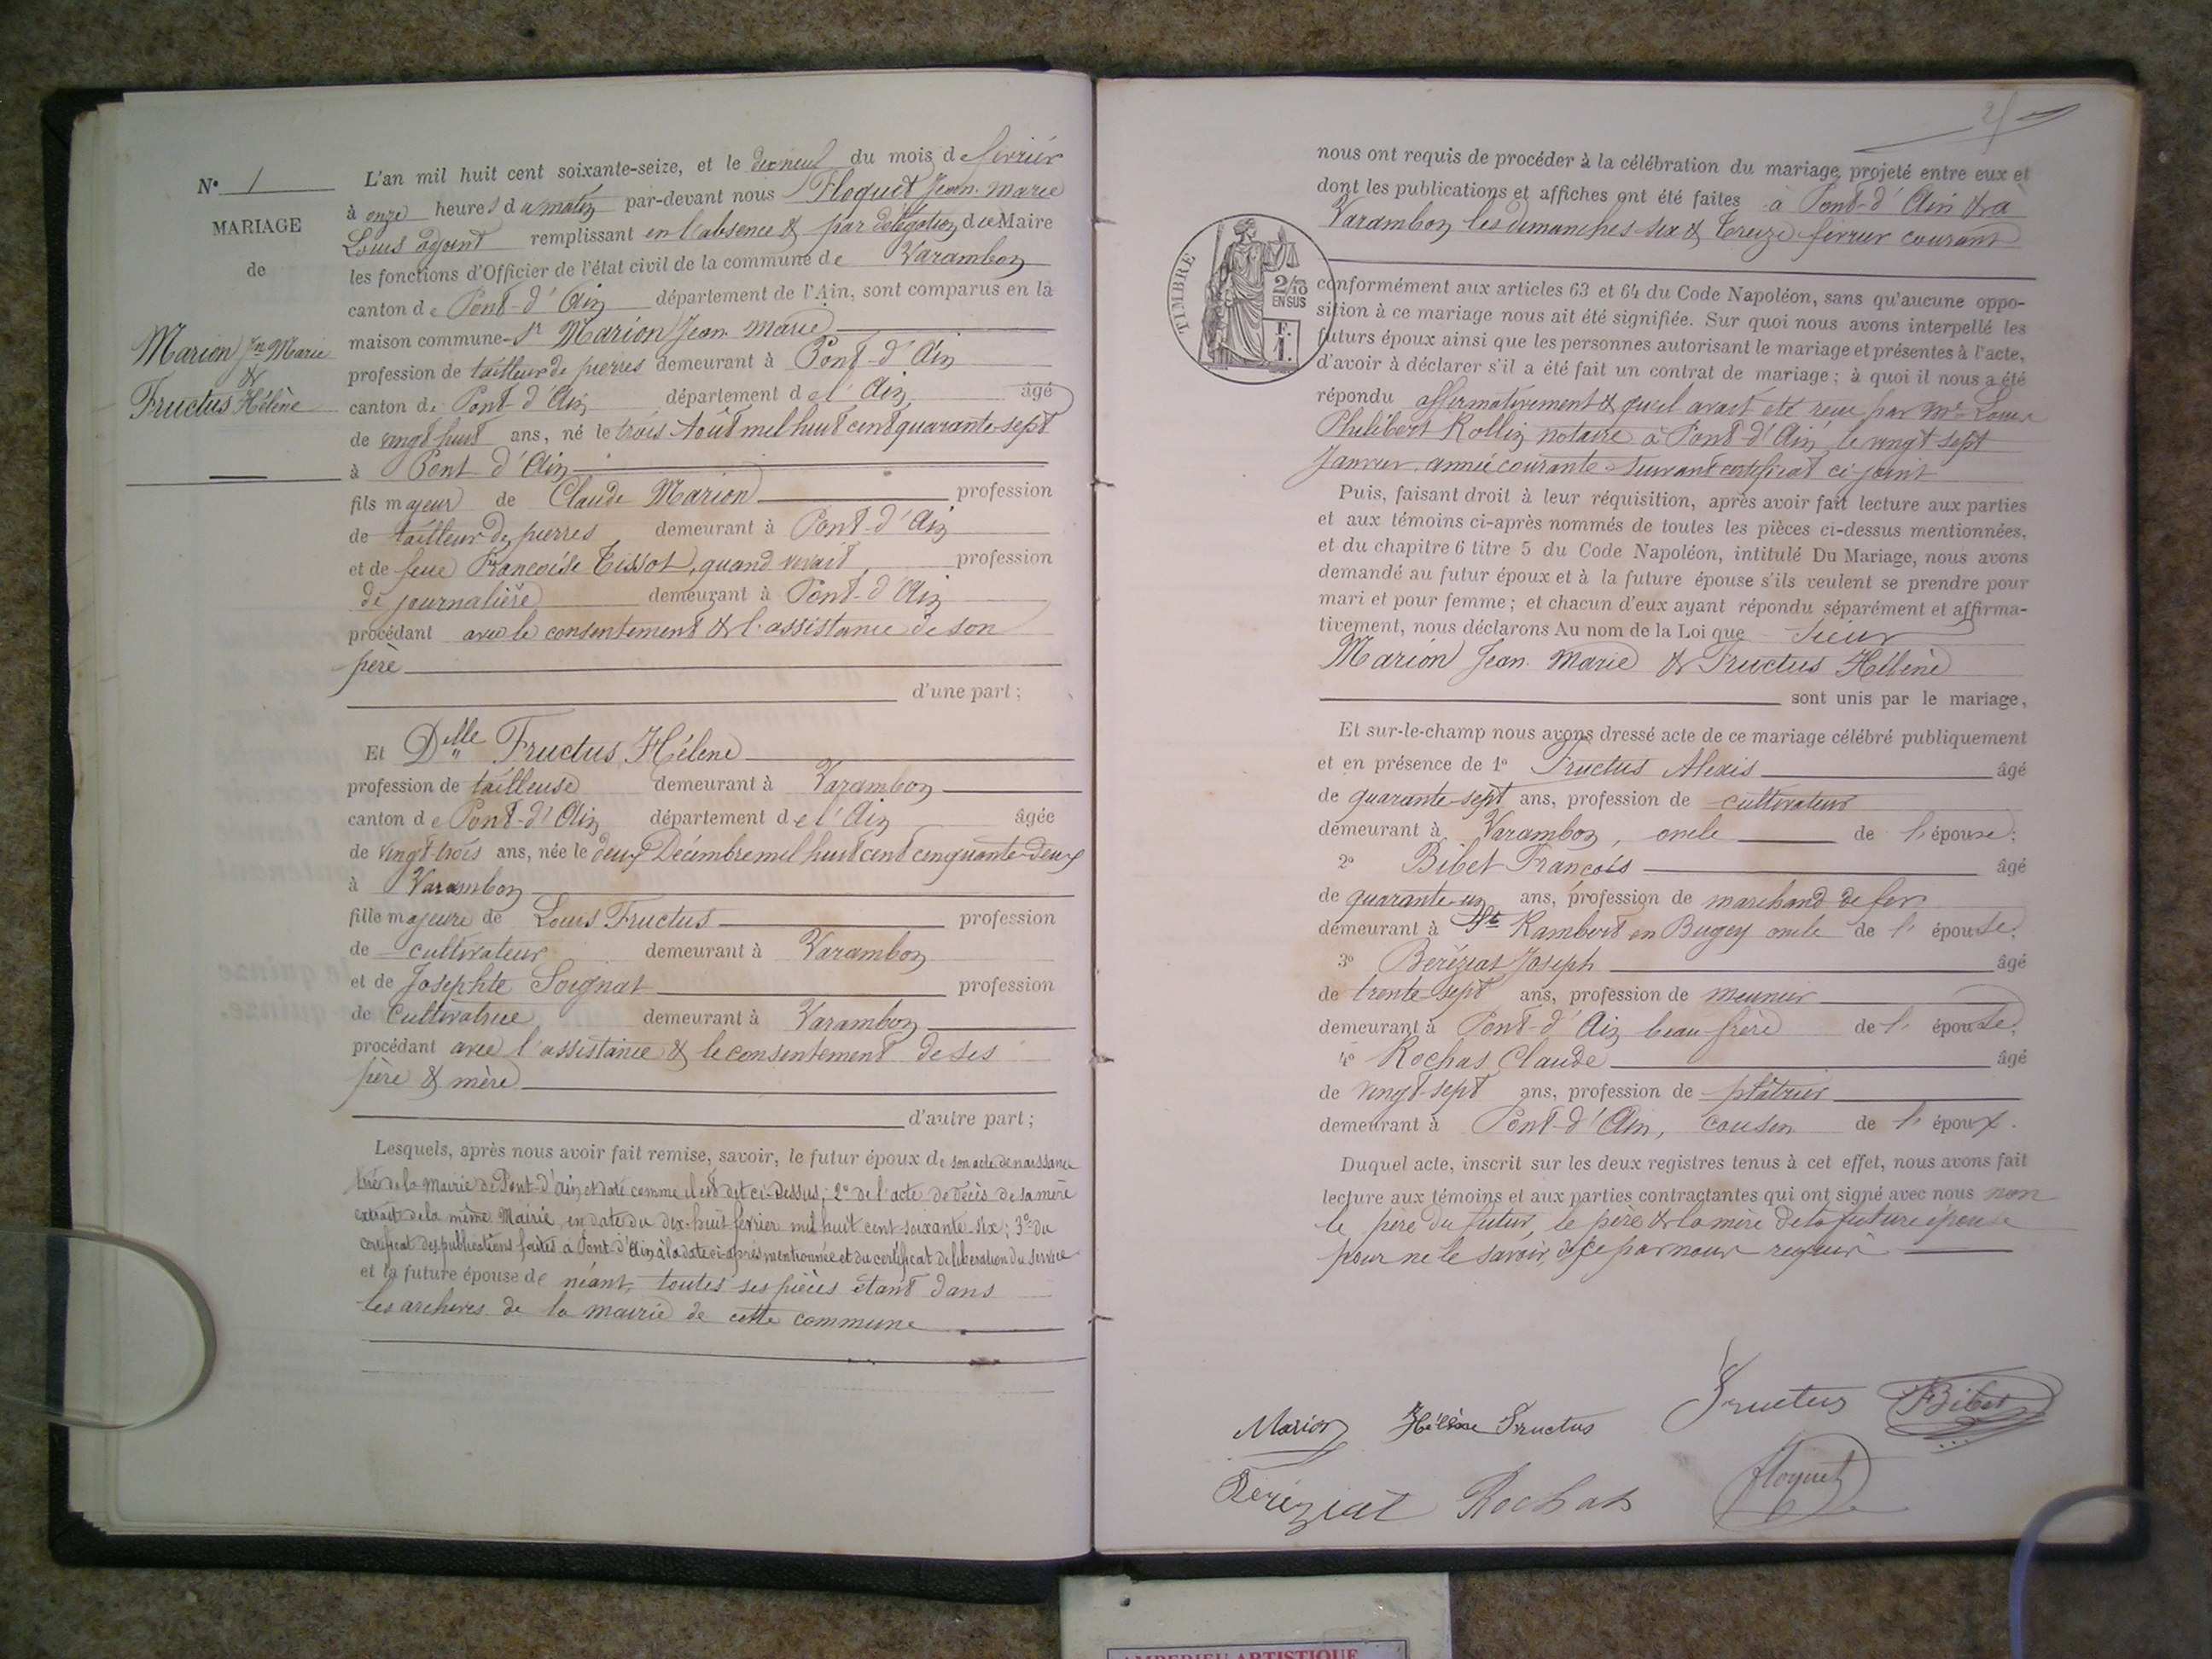 N° 1
MARIAGE
de
Marion Jn Marie
&
Fructus Hélène
L'an mil huit cent soixante-seize, et le dix neuf du mois de février
à onze heures du matin par-devant nous Floquet Jean-Marie
Louis adjoint remplissant en l'absence & par délégation du Maire
les fonctions d'Officier de l'état civil de la commune de Varambon
canton de Pont-d'Ain département de l'Ain, sont comparus en la
maison commune Sr Marion Jean Marie
profession de tailleur de pierres demeurant à Pont-d'Ain
canton de Pont-d'Ain département de l'Ain âgé
de vingt huit ans, né le trois Août mil huit cent quarante-sept
à Pont d'Ain
fils majeur de Claude Marion profession
de tailleur de pierres demeurant à Pont-d'Ain
et de feue Francoise Tissot, quand vivait, profession
de journalière demeurant à Pont-d'Ain
procédant avec le consentement & l'assistance de son
père
d'une part;
Et Delle Fructus Hélène
profession de tailleuse demeurant à Varambon
canton de Pont-d'Ain département de l'Ain âgée
de vingt-trois ans, née le deux Décembre mil huit cent cinquante-deux
à Varambon
fille majeure de Louis Fructus profession
de cultivateur demeurant à Varambon
et de Josephte Soignat profession
de Cultivatrice demeurant à Varambon
procédant avec l'assistance & le consentement de ses
père & mère
d'autre part;
Lesquels, après nous avoir fait remise, savoir, le futur époux de son acte de naissance
tiré de la Mairie de Pont-d'Ain et daté comme il est dit ci-dessus; 2° de l'acte de décès de sa mère
extrait de la même Mairie, en date du dix-huit février mil huit cent soixante-six; 3° du
certificat des publications faites à Pont-d'Ain à la date ci-après mentionnée et du certificat de libération du service
et la future épouse de néant, toutes ses pièces étant dans
les archives de la mairie de cette commune
nous ont requis de procéder à la célébration du mariage projeté entre eux et
dont les publications et affiches ont été faites à Pont-d'Ain & à
Varambon les dimanches six & treize fevrier courant
TIMBRE
2/10
EN SUS
F.
1.
conformément aux articles 63 et 64 du Code Napoléon, sans qu'aucune oppo-
sition à ce mariage nous ait été signifiée. Sur quoi nous avons interpellé les
futurs époux ainsi que les personnes autorisant le mariage et présentes à l'acte,
d'avoir à déclarer s'il a été fait un contrat de mariage; à quoi il nous a été
répondu affirmativement & qu'il avait été reçu par Me Louis
Philibert Rollin notaire à Pont-d'Ain, le vingt-sept
Janvier, année courante suivant certificat ci-joint
Puis, faisant droit à leur réquisition, après avoir fait lecture aux parties
et aux témoins ci-après nommés de toutes les pièces ci-dessus mentionnées,
et du chapitre 6 titre 5 du Code Napoléon, intitulé Du Mariage, nous avons
demandé au futur époux et à la future épouse s'ils veulent se prendre pour
mari et pour femme; et chacun d'eux ayant répondu séparément et affirma-
tivement, nous déclarons Au nom de la Loi que sieur
Marion Jean Marie & Fructus Hélène
sont unis par le mariage,
Et sur-le-champ nous avons dressé acte de ce mariage célébré publiquement
et en présence de 1° Fructus Alexis âgé
de quarante-sept ans, profession de cultivateur
demeurant à Varambon, oncle de l'épouse;
2° Bibet Francois âgé
de quarante-un ans, profession de marchand de fer
demeurant à St Rambert en Bugey oncle de l'épouse;
3° Beréziat Joseph âgé
de trente-sept ans, profession de meunier
demeurant à Pont-d'Ain beau-frère de l'épouse;
4° Rochas Claude âgé
de vingt-sept ans, profession de plâtrier
demeurant à Pont-d'Ain, cousin de l'époux.
Duquel acte, inscrit sur les deux registres tenus à cet effet, nous avons fait
lecture aux témoins et aux parties contractantes qui ont signé avec nous non
le père du futur, le père & la mère de la future épouse
pour ne le savoir, de ce par nous requis
Marion Hélène Fructus Fructus F Bibet
Beréziat Rochas Floquet
AMBERIEU ARTISTIQUE